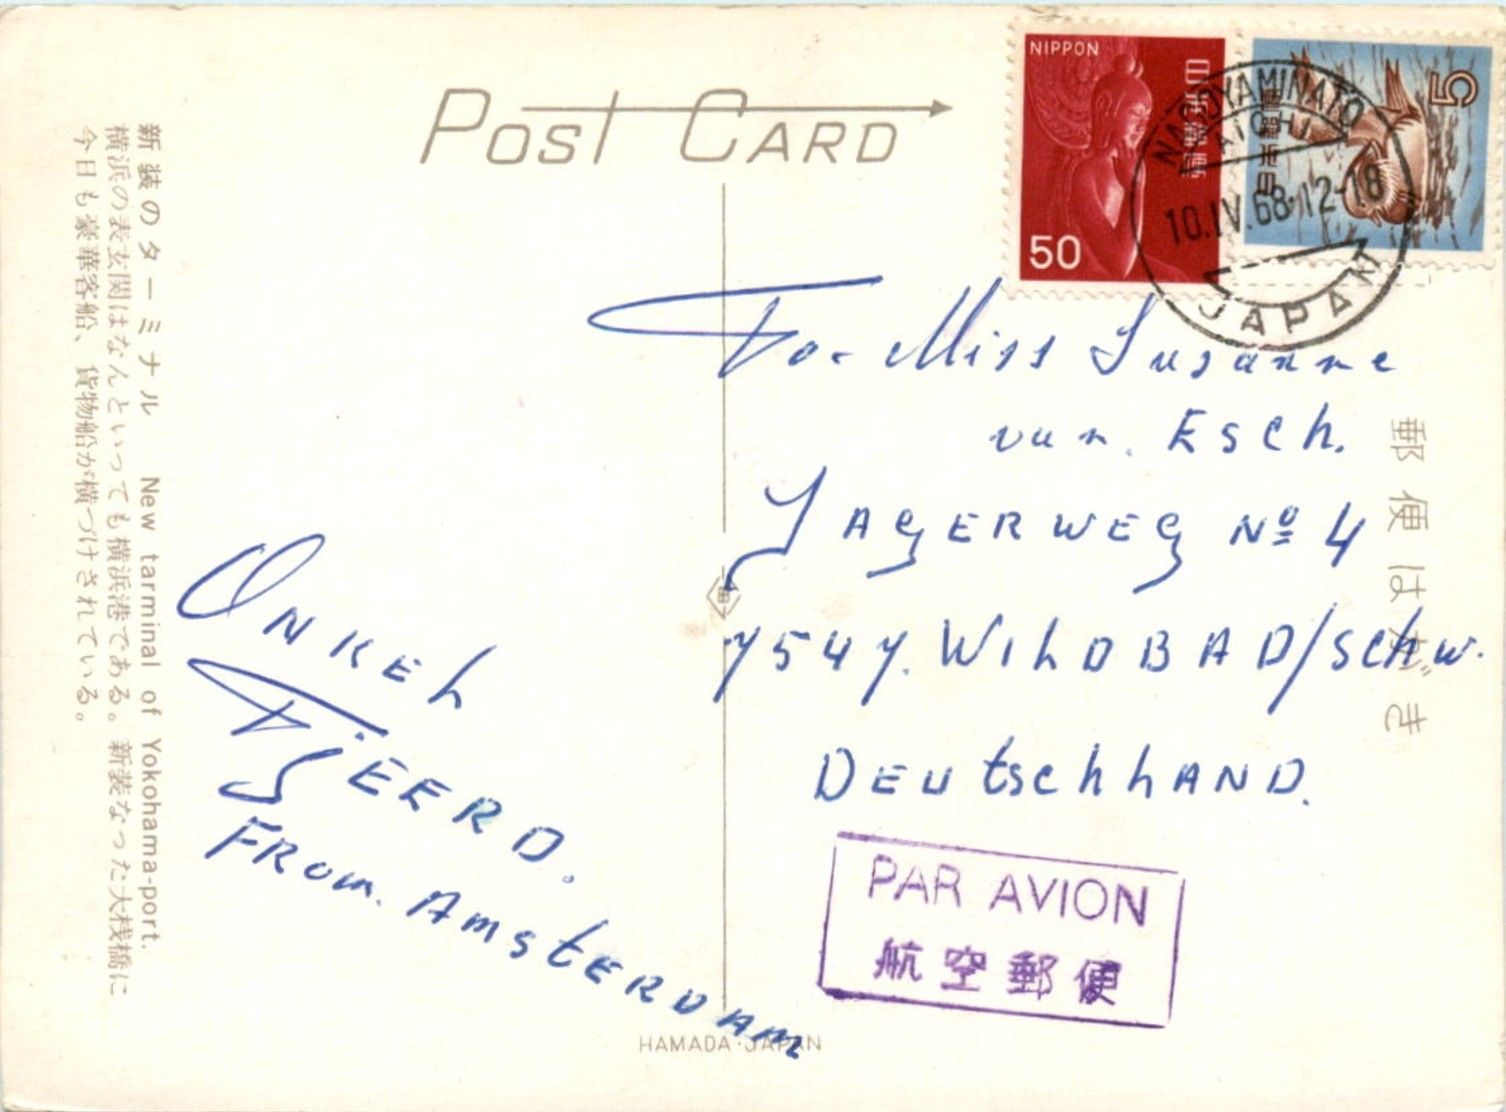 POST CARD
NIPPON
日本郵便
50
日本郵便
5
NAGOYAMINATO
AICHI
10.IV.68.12-18
JAPAN
新装のターミナル New tarminal of Yokohama-port.
横浜の表玄関はなんといっても横浜港である。新装なった大桟橋に
今日も豪華客船、貨物船が横づけされている。
To- Miss Susanne
van. Esch.
JAGERWEG Nº 4
7547. WILDBAD/SCHW.
DEUtschLAND.
郵便はがき
ONKEL
TJEERD.
FROM. AmstERDAM
PAR AVION
航空郵便
HAMADA・JAPAN